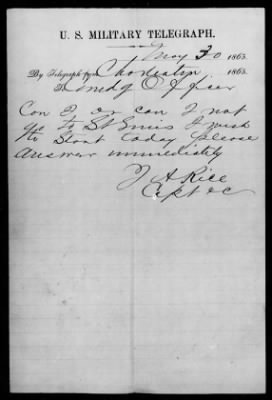 U. S. MILITARY TELEGRAPH.
May 30 1863.
By Telegraph from Charleston 1863.
To Comdg Officer
Can I or can I not
go to St Louis I wish
to Start today please
answer immediately
J A Rice
Capt &c